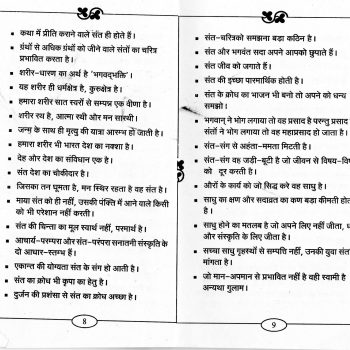 कथा में प्रीति कराने वाले संत ही होते हैं।
ग्रंथों से अधिक ग्रंथों को जीने वाले संतों का चरित्र
प्रभावित करता है।
शरीर-धारण का अर्थ है 'भगवद्‌भक्ति'।
यह शरीर ही धर्मक्षेत्र है, कुरुक्षेत्र है।
हमारा शरीर सात स्वरों से सम्पन्न एक वीणा है।
शरीर रथ है, आत्मा रथी और मन सारथी।
जन्म के साथ ही मृत्यु की यात्रा आरम्भ हो जाती है।
हमारा शरीर भी भारत देश का नक्शा है।
देह और देश का संविधान एक है।
संत देश का चौकीदार है।
जिसका तन घूमता है, मन स्थिर रहता है वह संत है।
माया संत को ही नहीं, उसकी पंक्ति में आने वाले किसी
को भी परेशान नहीं करती।
संत की चिन्ता का मूल स्वार्थ नहीं, परमार्थ है।
आचार्य-परम्परा और संत-परंपरा सनातनी संस्कृति के
दो आधार-स्तम्भ हैं।
एकान्त की योग्यता संत के संग हो आती है।
संत का क्रोध भी कृपा का हेतु है।
दुर्जन की प्रशंसा से संत का क्रोध अच्छा है।
8
संत-चरित्रको समझना बड़ा कठिन है।
संत और भगवंत सदा अपने आपको छुपाते हैं।
संत जीव को जगाते हैं।
संत की इच्छा पारमार्थिक होती है।
संत के क्रोध का भाजन भी बनो तो अपने को धन्य
समझो।
भगवान् ने भोग लगाया तो वह प्रसाद है परन्तु प्रसाद
संतों ने भोग लगाया तो वह महाप्रसाद हो जाता है।
संत-संग से अहंता-ममता मिटती है।
संत-संग वह जड़ी-बूटी है जो जीवन से विषय-विष
को दूर करती है।
औरों के कार्य को जो सिद्ध करे वह साधु है।
साधु का क्षण और सदाव्रत का कण बड़ा कीमती होता
है।
साधु होने का मतलब है जो अपने लिए नहीं जीता,
और संस्कृति के लिए जीता है।
सच्चा साधु गृहस्थों से सम्पत्ति नहीं, उनकी युवा संत
मांगता है।
जो मान-अपमान से प्रभावित नहीं है वही स्वामी है
अन्यथा गुलाम।
9